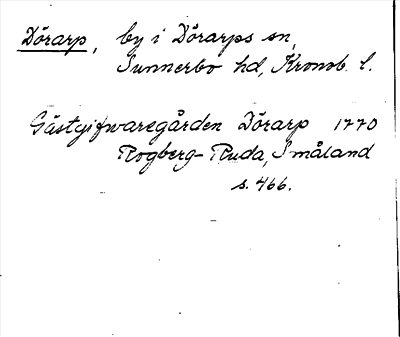 Dörarp, by i Dörarps sn,
Sunnerbo hd, Kronob. l.
Gästgifwaregården Dörarp 1770
Rogberg-Ruda, Småland
s. 466.